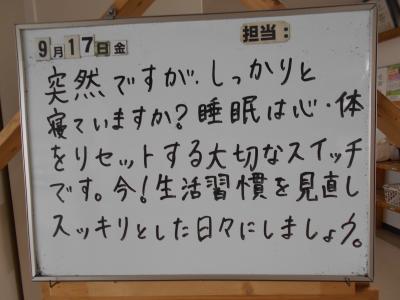 9月17日金 担当:
突然ですが、しっかりと
寝ていますか?睡眠は心・体
をリセットする大切なスイッチ
です。今!生活習慣を見直し
スッキリとした日々にしましょう。